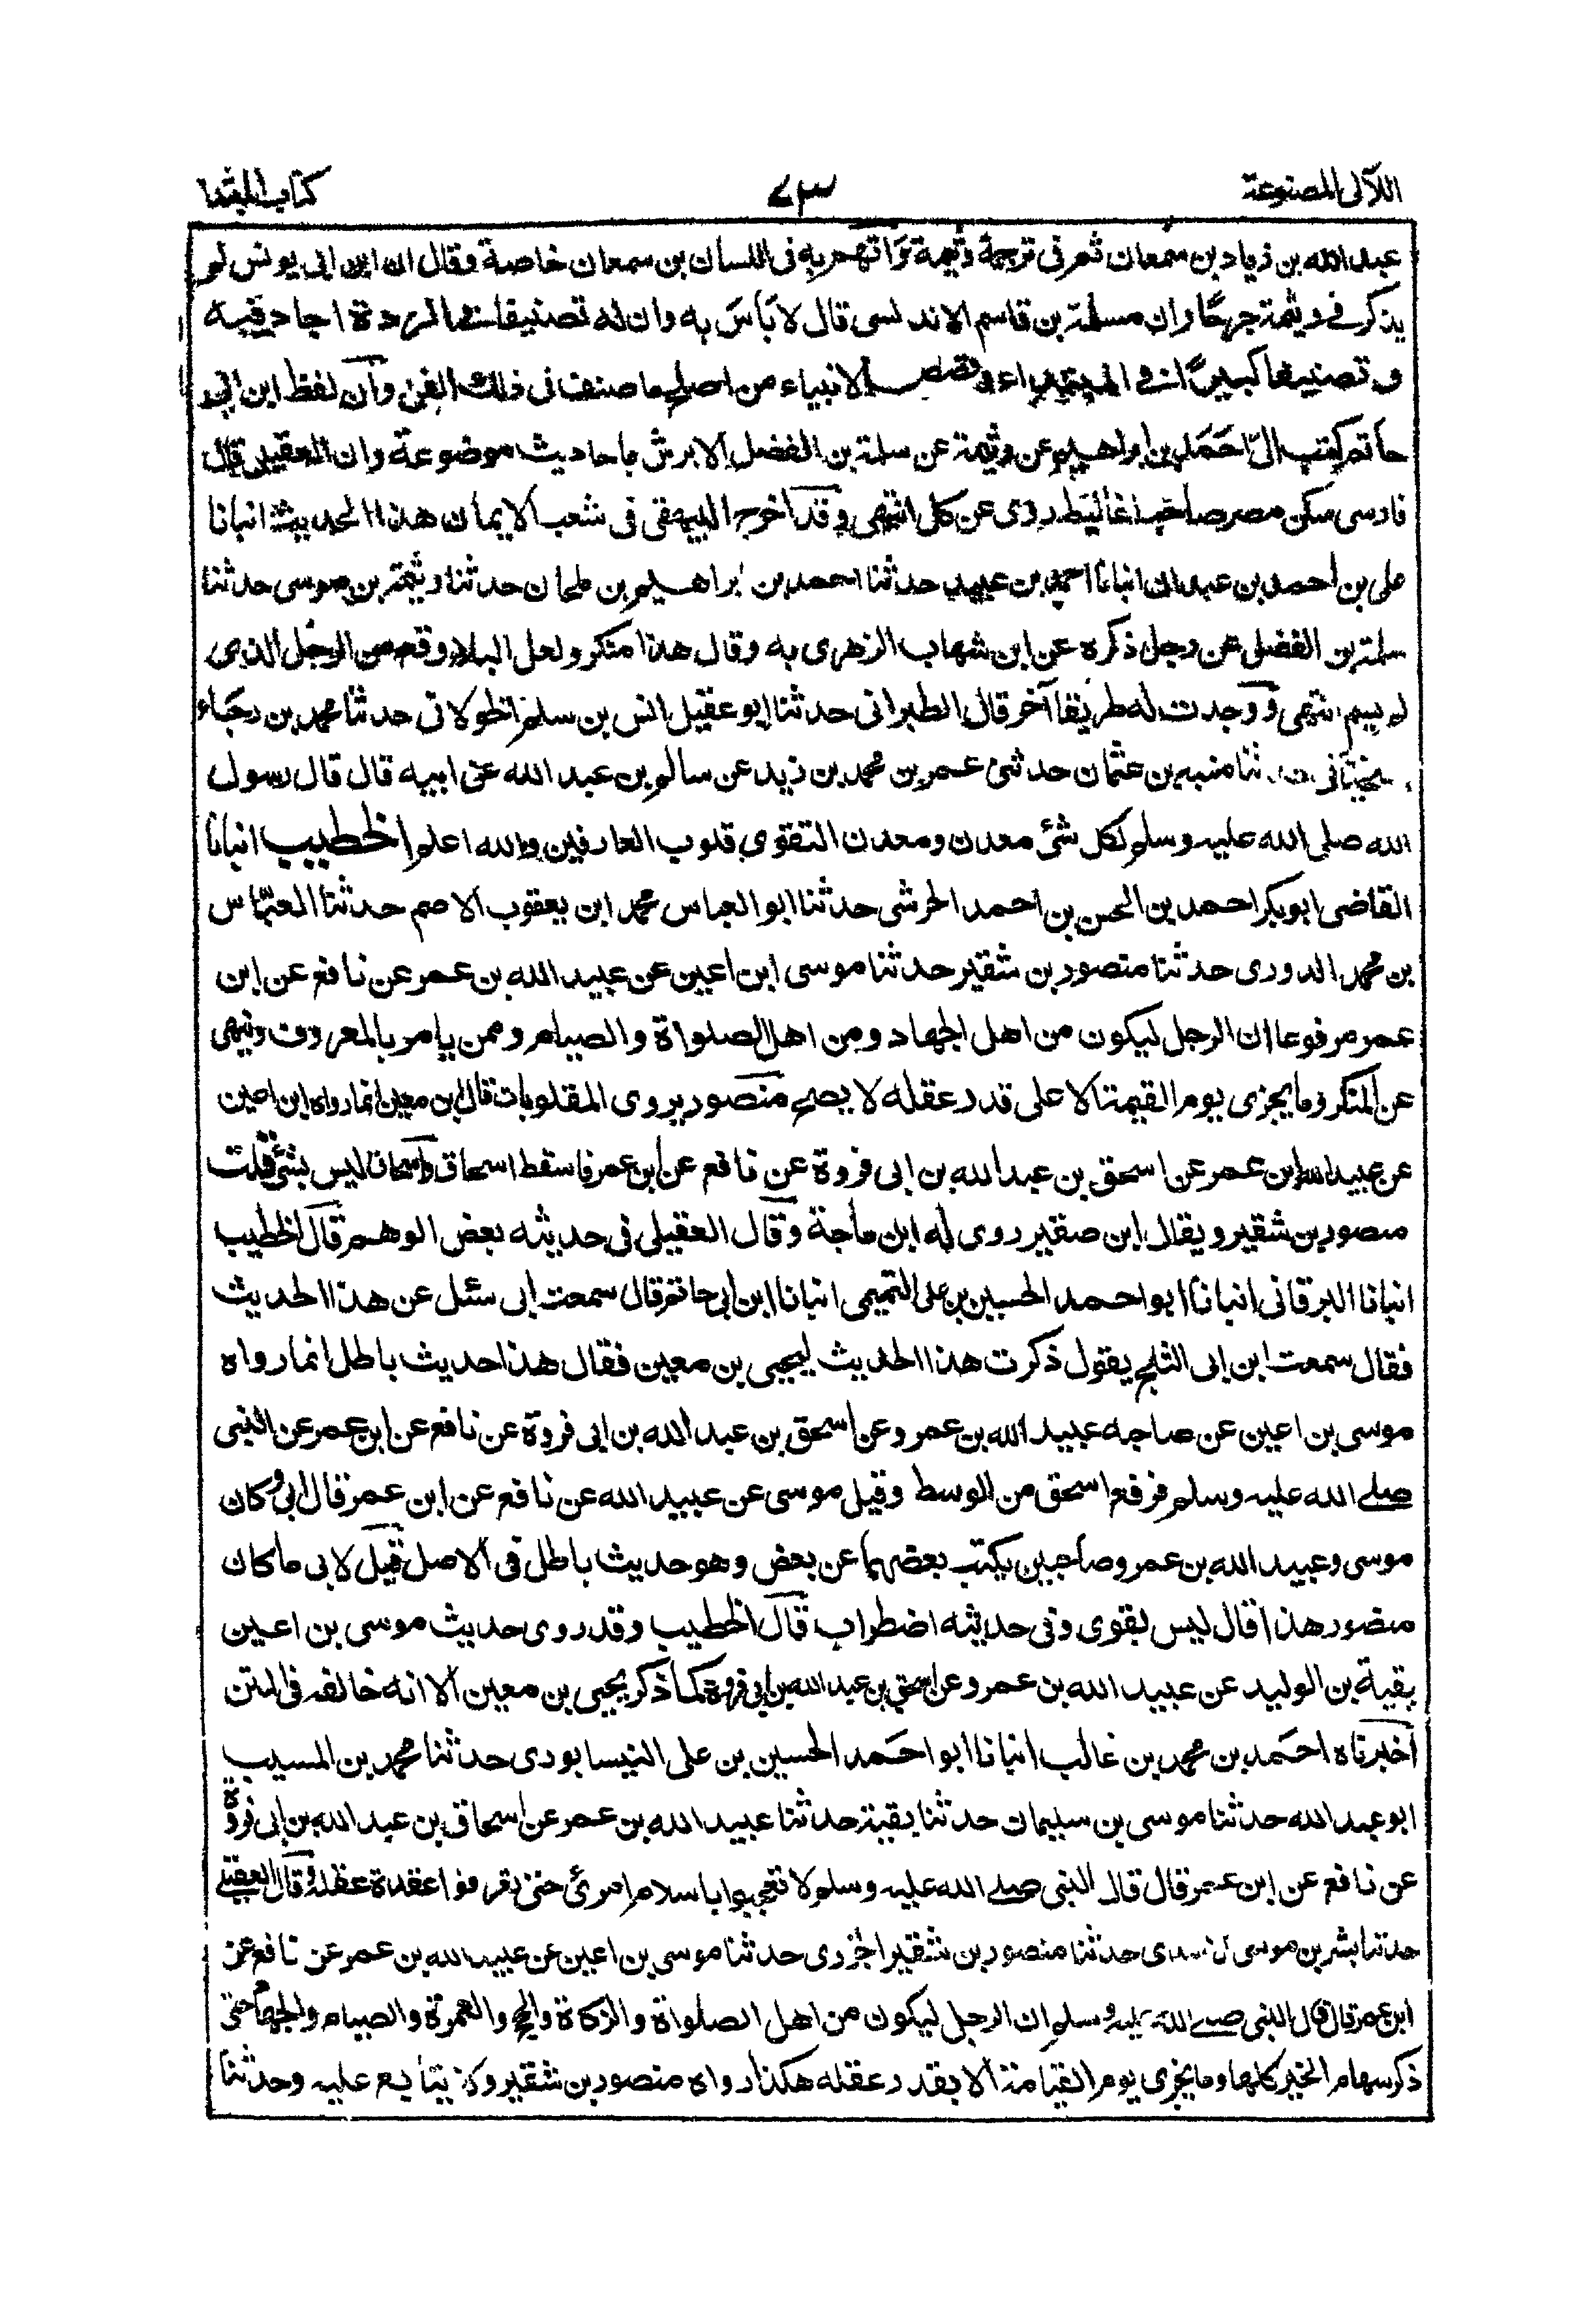 اللآلى المصنوعة ٧٣ كتاب المبتدا
عبد الله بن زياد بن سمعان ثم فى ترجمة وثيمة تراتهم به فى اللسان بن سمعان خاصة وقال ان ابن ابى يونس لم
يذكر فى وثيمة جرحًا وان مسلمة بن قاسم الاندلسى قال لا بأس به وان له تصنيفا فى الردة اجاد فيه
و تصنيفا كبيرًا فى المبتدا وقصص الانبياء من اصلح ما صنف فى ذلك الفن وان لفظ ابن ابى
حاتم كتب الىّ احمد بن ابراهيم عن وثيمة عن سلمة بن الفضل الابرش باحاديث موضوعة وان العقيلى قال
فارسى سكن مصر صاحب اغاليط روى عن كل انتهى وقد اخرج البيهقى فى شعب الايمان هذا الحديث انبانا
على بن احمد بن عبدان انبانا احمد بن عبيد حدثنا احمد بن ابراهيم بن ملحان حدثنا وثيمة بن موسى حدثنا
سلمة بن الفضل عن رجل ذكره عن ابن شهاب الزهرى به وقال هذا منكر ولعل البلاء وقع من الرجل الذى
لم يسم انتهى ووجدت له طريقا آخر قال الطبرانى حدثنا ابو عقيل انس بن سلم الخولانى حدثنا محمد بن رجاء
ثنا منبه بن عثمان حدثنى عمر بن محمد بن زيد عن سالم بن عبد الله عن ابيه قال قال رسول
الله صلى الله عليه وسلم لكل شئ معدن ومعدن التقوى قلوب العارفين والله اعلم الخطيب انبانا
القاضى ابو بكر احمد بن الحسن بن احمد الحرشى حدثنا ابو العباس محمد ابن يعقوب الاصم حدثنا العبّاس
بن محمد الدورى حدثنا منصور بن شقير حدثنا موسى ابن اعين عن عبيد الله بن عمر عن نافع عن ابن
عمر مرفوعا ان الرجل ليكون من اهل الجهاد ومن اهل الصلواة والصيام وممن يامر بالمعروف وينهى
عن المنكر وما يجزى يوم القيمة الا على قدر عقله لا يصح منصور يروى المقلوبات قال ابن معين انما رواه ابن اعين
عن عبيد الله ابن عمر عن اسحق بن عبد الله بن ابى فروة عن نافع عن ابن عمر فاسقط اسحاق واسحاق ليس بشئ قلت
منصور بن شقير ويقال ابن صقير روى له ابن ماجة وقال العقيلى فى حديثه بعض الوهم قال الخطيب
انبانا البرقانى انبانا ابو احمد الحسين بن على التميمى انبانا ابن ابى حاتم قال سمعت ابى سئل عن هذا الحديث
فقال سمعت ابن ابى الثلج يقول ذكرت هذا الحديث ليحيى بن معين فقال هذا حديث باطل انما رواه
موسى بن اعين عن صاحبه عبيد الله بن عمرو عن اسحق بن عبد الله بن ابى فروة عن نافع عن ابن عمر عن النبى
صلے الله عليه وسلم فرفع اسحق من الوسط وقيل موسى عن عبيد الله عن نافع عن ابن عمر قال ابى وكان
موسى وعبيد الله بن عمرو صاحبين يكتب بعضهما عن بعض وهو حديث باطل فى الاصل قيل لابى ما كان
منصور هذا قال ليس بقوى وفى حديثه اضطراب قال الخطيب وقد روى حديث موسى بن اعين
بقية بن الوليد عن عبيد الله بن عمرو عن اسحق بن عبد الله بن ابى فروة كما ذكر يحيى بن معين الا انه خالفه فى المتن
اخبرناه احمد بن محمد بن غالب انبانا ابو احمد الحسين بن على النيسابورى حدثنا محمد بن المسيب
ابو عبد الله حدثنا موسى بن سليمان حدثنا بقية حدثنا عبيد الله بن عمر عن اسحاق بن عبد الله بن ابى فروة
عن نافع عن ابن عمر قال قال النبى صلے الله عليه وسلم لا تعجبوا باسلام امرئ حتى تعرفوا عقدة عقله وقال العقيلے
حدثنا بشر بن موسى الاسدى حدثنا منصور بن شقير الجزرى حدثنا موسى بن اعين عن عبيد الله بن عمر عن نافع عن
ابن عمر قال قال النبى صلے الله عليه وسلم ان الرجل ليكون من اهل الصلواة والزكاة والحج والعمرة والصيام والجهاد حتى
ذكر سهام الخير كلها وما يجزى يوم القيامة الا بقدر عقله هكذا رواه منصور بن شقير ولا يتابع عليه وحدثنا